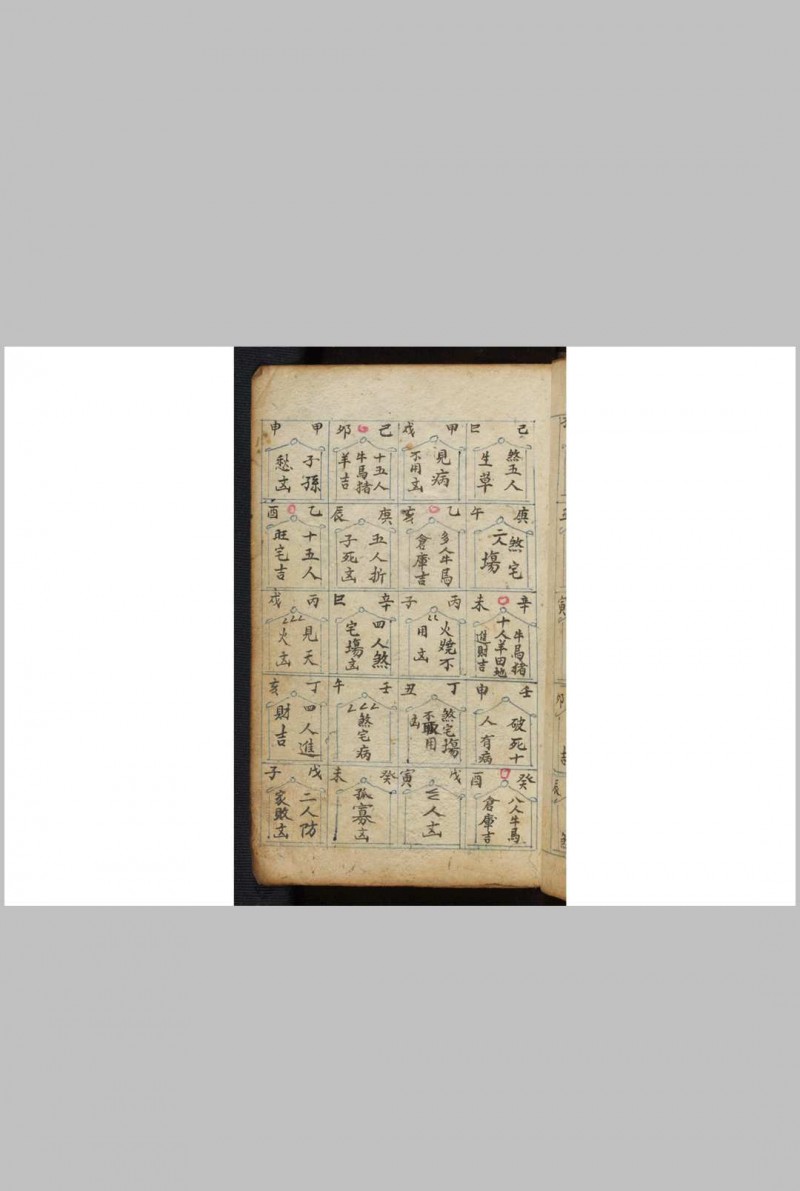 己巳
煞五人
生草
庚午
煞宅
塲
辛未
牛馬猪
十人羊田地
進財吉
壬申
破死十
人有病
癸酉
八人牛馬
倉庫吉
甲戌
見病
不用
乙亥
多人牛馬
倉庫吉
丙子
火燒不
用
丁丑
煞宅塲
不用
戊寅
人
己卯
十五人
牛馬猪
羊吉
庚辰
五人折
子死
辛巳
四人煞
宅塲
壬午
煞宅病
癸未
孤寡
甲申
子孫
愁
乙酉
十五人
旺宅吉
丙戌
見天
火
丁亥
四人進
財吉
戊子
二人防
家敗
寅